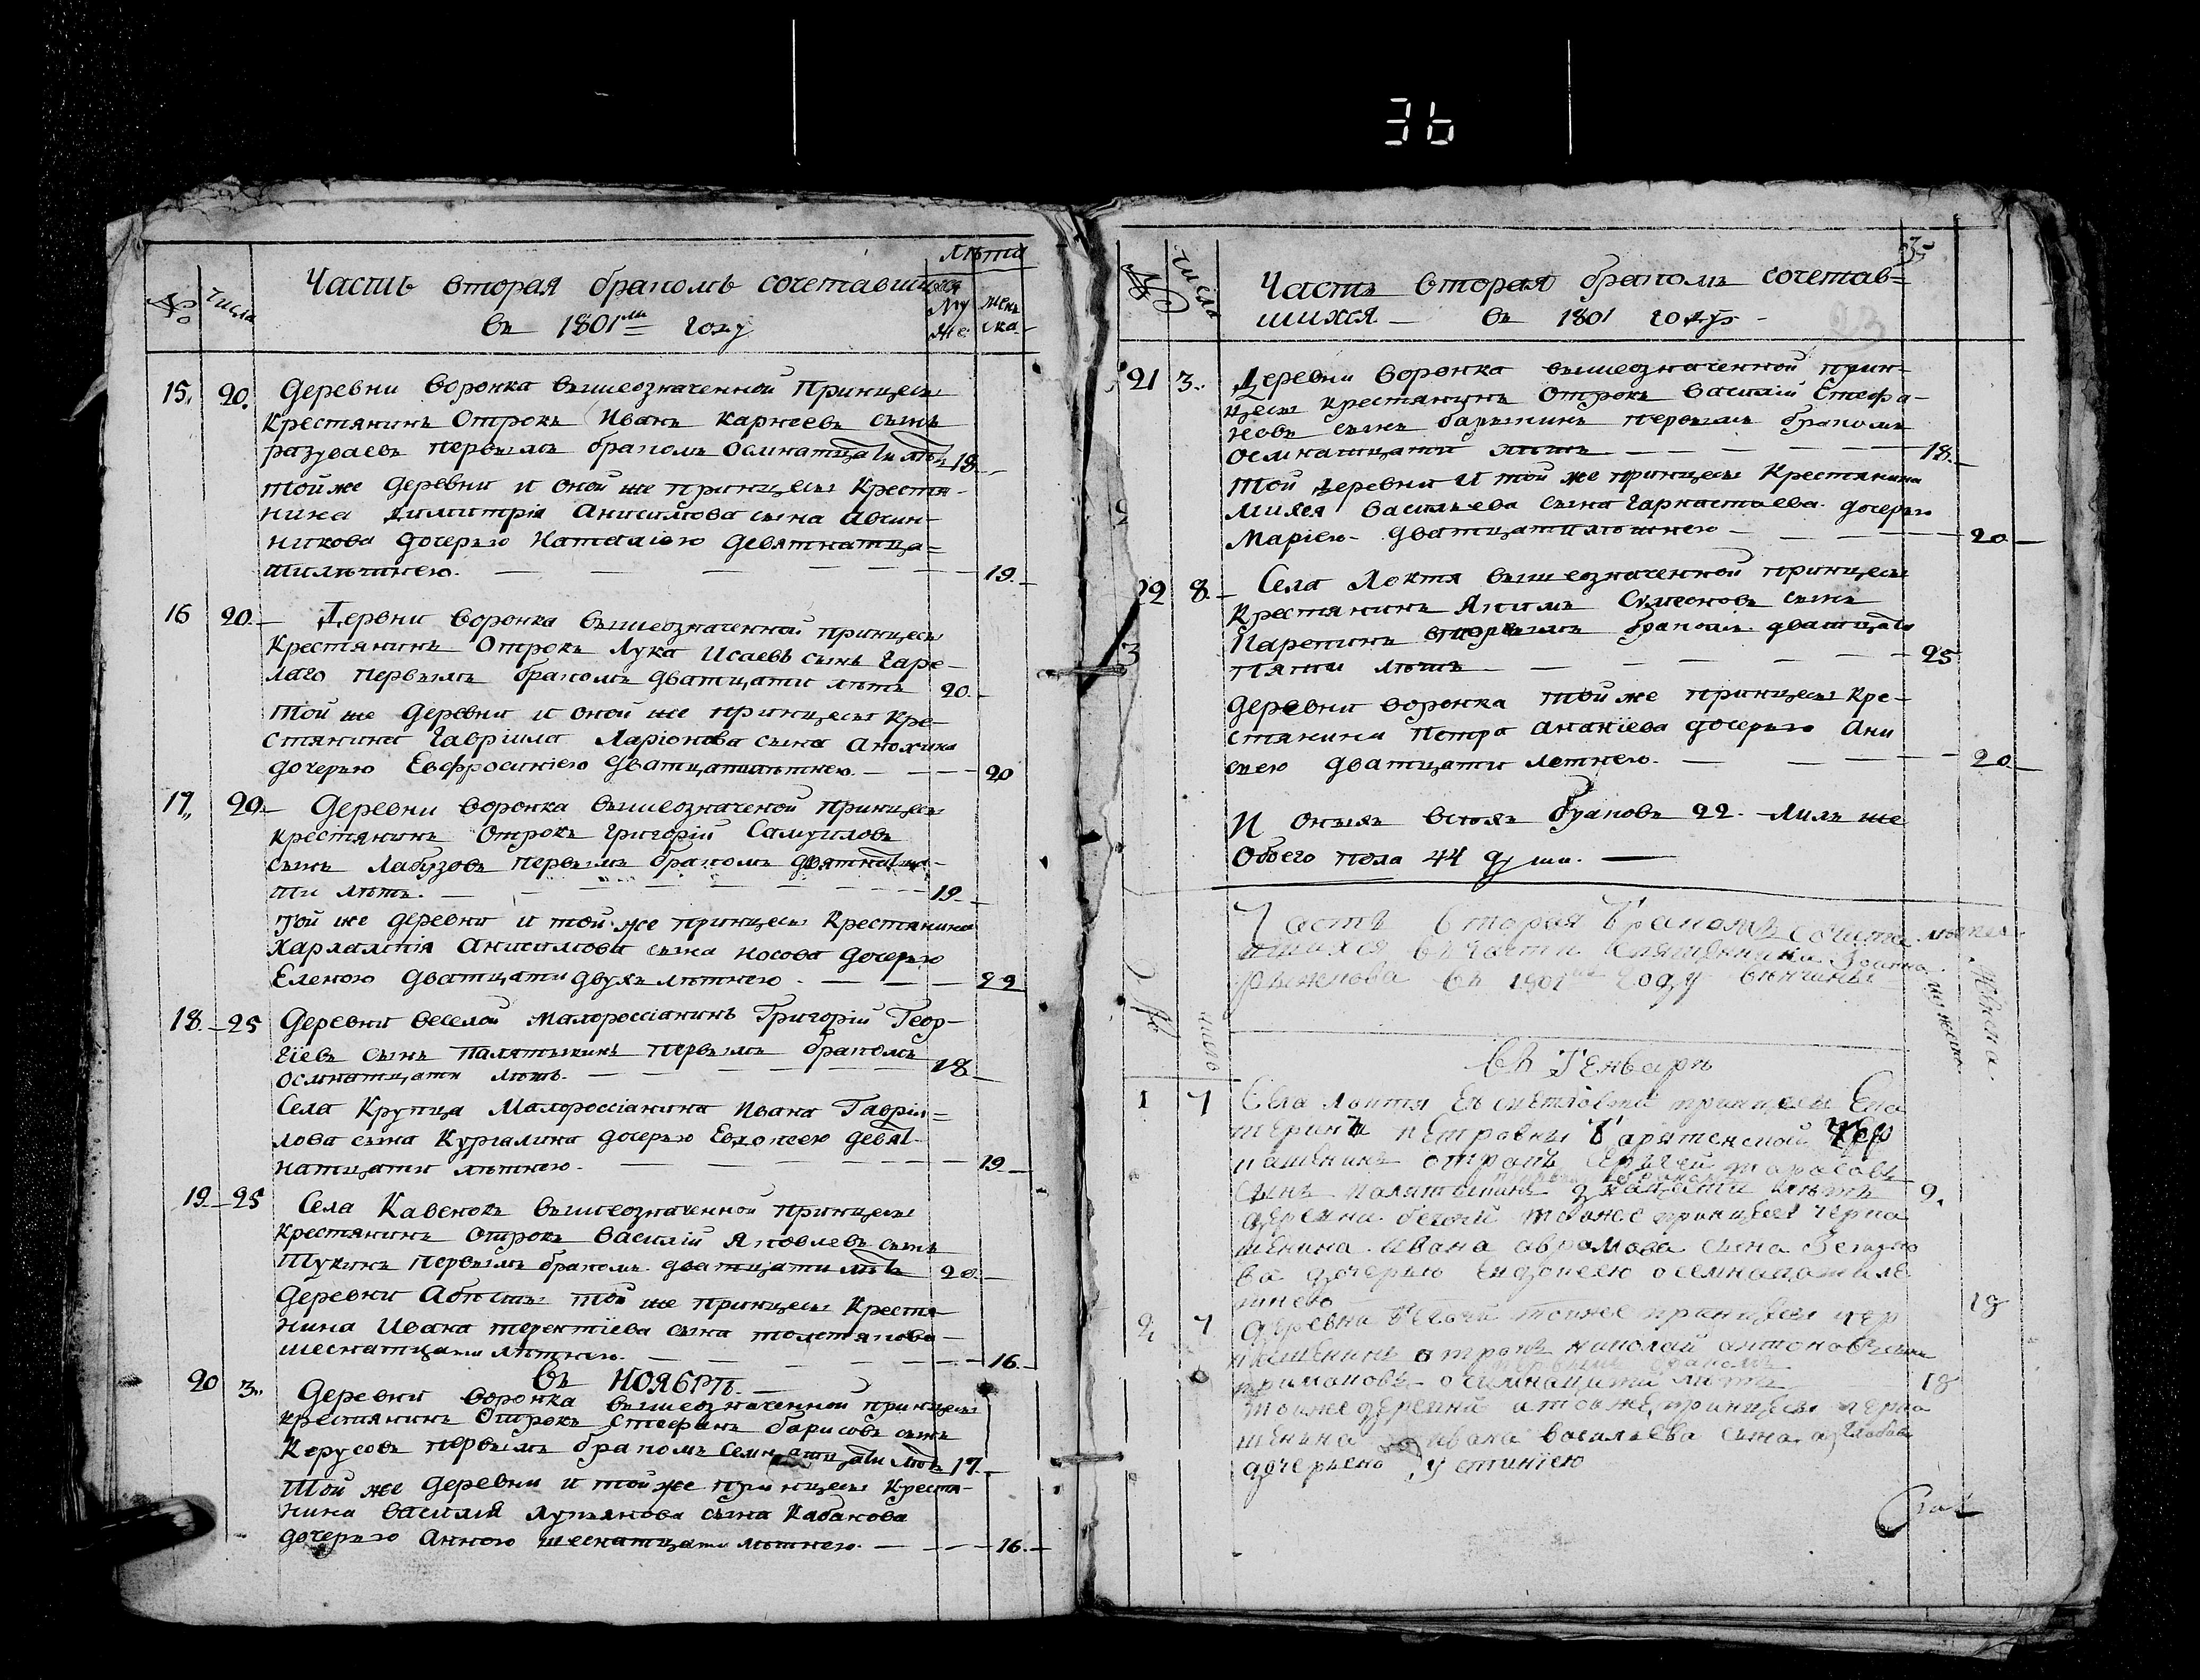 36
№
числа
Часть вторая бракомъ сочетавшихся
въ 1801мъ году
лѣта
му
же.
жен
ска.
15. 20. Деревни Воронка вышеозначенной Принцесы
крестянинъ Отрокъ Иванъ Карнеевъ сынъ
разуваевъ первымъ бракомъ Осмнатцати лѣтъ 18.
той же деревни и оной же принцесы Крестя-
нина Димитрія Анисимова сына Авсин-
никова дочерью Наталіею девятнатца-
тилѣтнею. 19.
16 20. Дервни Воронка вышеозначенной принцесы
Крестянинъ Отрокъ Лука Исаевъ сынъ Гаре-
лаго первымъ бракомъ дватцати лѣтъ 20.
той же деревни и оной же принцесы кре-
стянина Гавріила Ларіонова сына Анохина
дочерью Евфросиніею дватцатилѣтнею. 20
17. 20. Деревни Воронка вышеозначеной принцесы
крестянинъ Отрокъ Григорій Самуиловъ
сынъ Лабузовъ первымъ бракомъ двятнатца-
ти лѣтъ. 19.
той же деревни и той же принцесы Крестянина
Харлампія Анисимова сына Носова дочерью
Еленою дватцати двухъ лѣтнею. 22
18. 25 Деревни Веселой Малороссіанинъ Григорій Геор-
гіевъ сынъ первымъ бракомъ
осмнатцати лѣтъ. 18.
Села Крупца Малороссіанина Ивана Гавріи=
лова сына Кургалина дочерью Евдокіею девят-
натцати лѣтнею. 19.
19. 25 Села Кавенокъ вышеозначенной принцесы
крестянинъ Отрокъ Василій Яковлевъ сынъ
Тукинъ первымъ бракомъ дватцати лѣтъ 20.
деревни той же принцесы Крестя-
нина Ивана терентіева сына толстякова
шеснатцати лѣтнею. 16.
въ НОЯбРѢ.
20 3. Деревни Воронка вышеозначенной принцесы
крестянинъ Отрокъ Стефанъ барисовъ сынъ
Карусовъ первымъ бракомъ Семнатцати лѣтъ 17.
той же деревни и той же принцесы Крестя-
нина Василія Лукьянова сына Кабанова
дочерью Анною шеснатцати лѣтнею. 16.
№
числа
Часть вторая бракомъ сочетав=
шихся въ 1801 году
23
21 3. Деревни Воронка вышеозначенной прин-
цесы крестянинъ Отрокъ Василій Стефа-
новъ сынъ первымъ бракомъ
осмнатцати лѣтъ 18.
той деревни И той же принцесы Крестянина
Михея Васильева сына Гаркастаева дочерью
Маріею дватцатилѣтнею 20.
22 8. Села Локтя вышеозначенной принцесы
Крестянинъ Якимъ Симеоновъ сынъ
вторымъ бракомъ дватцати
пяти лѣтъ 25
деревни воронка той же принцесы Кре-
стянина Петра Ананіева дочерью Ани
сьею дватцати летнею. 20.
И онихъ всѣхъ браковъ 22.
Обоего пола 44 души.
Часть Вторая бракомъ сочета
вшихся въ части священника Іоанна
рыжкова въ 1801мъ году вѣнчаны
число
мужеска
женска
Въ Генварѣ
1 7 Села локтя Ея свѣтлости принцесы Ека
терины Петровны барятенской Чер
кашенинъ отрокъ Сергѣй тарасовъ
сынъ дватцати лѣтъ
деревни той же принцесы черка
шенина Ивана аврамова сына
ва дочерью Евдокіею осемнацатилѣ
тнею 18
2 7 деревни тойже принцесы чер
кашенинъ отрокъ николай антоновъ сынъ
первымъ бракомъ
осимнацати лѣтъ 18
тойже деревни и тойже принцесы черка
шенина ивана васильева сына
дочерью устиніею